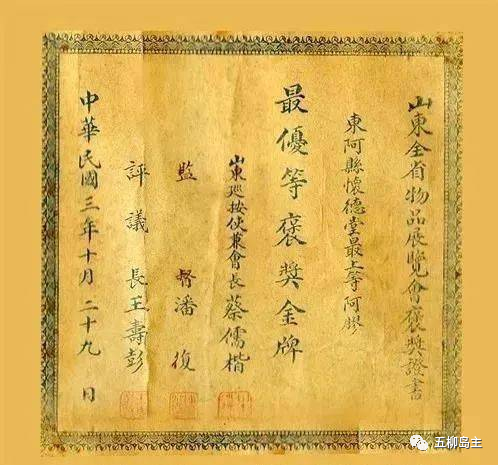 山東全省物品展覽會褒獎證書
東阿縣懷德堂最上等阿膠
最優等褒獎金牌
山東巡按使兼會長蔡儒楷
監督潘復
評議長王壽彭
中華民國三年十月二十九日
五柳岛主